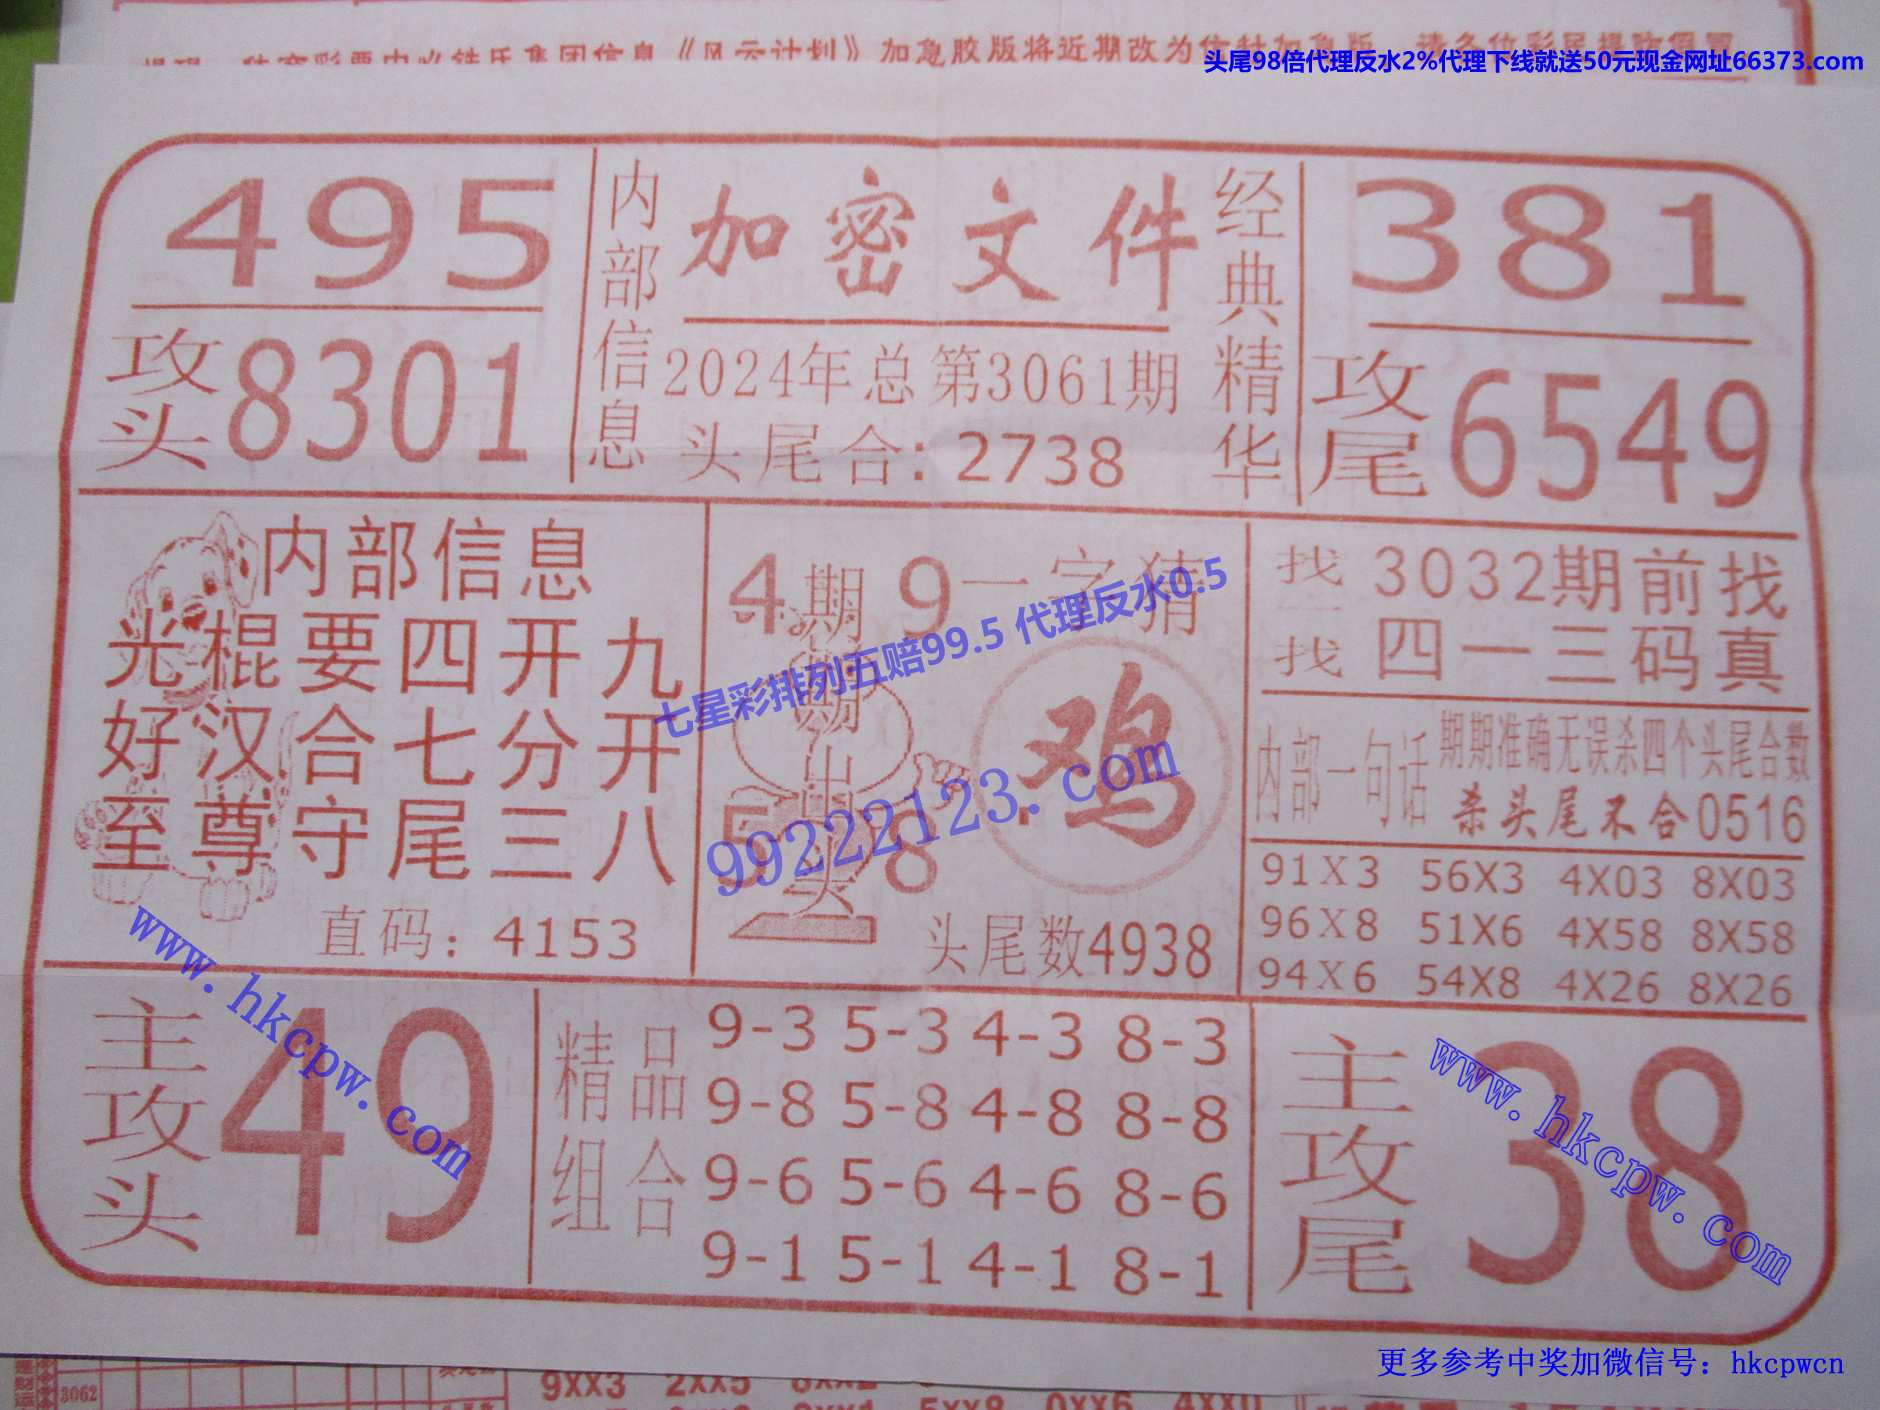 加急胶版将近期改为
头尾98倍代理反水2%代理下线就送50元现金网址66373.com
495
攻头8301
内部信息
加密文件
2024年总第3061期
头尾合:2738
经典精华
381
攻尾6549
内部信息
光棍要四开九
好汉合七分开
至尊守尾三八
直码:4153
4 9
5 8
期期期出头
一字猜
鸡
头尾数4938
七星彩排列五赔99.5 代理反水0.5
99222123.com
找一找
3032期前找
四一三码真
内部一句话
期期准确无误杀四个头尾合数
杀头尾不合0516
91X3 56X3 4X03 8X03
96X8 51X6 4X58 8X58
94X6 54X8 4X26 8X26
www.hkcpw.com
主攻头
49
精品组合
9-3 5-3 4-3 8-3
9-8 5-8 4-8 8-8
9-6 5-6 4-6 8-6
9-1 5-1 4-1 8-1
主攻尾
38
www.hkcpw.com
更多参考中奖加微信号：hkcpwcn
3062
9XX3 2XX5